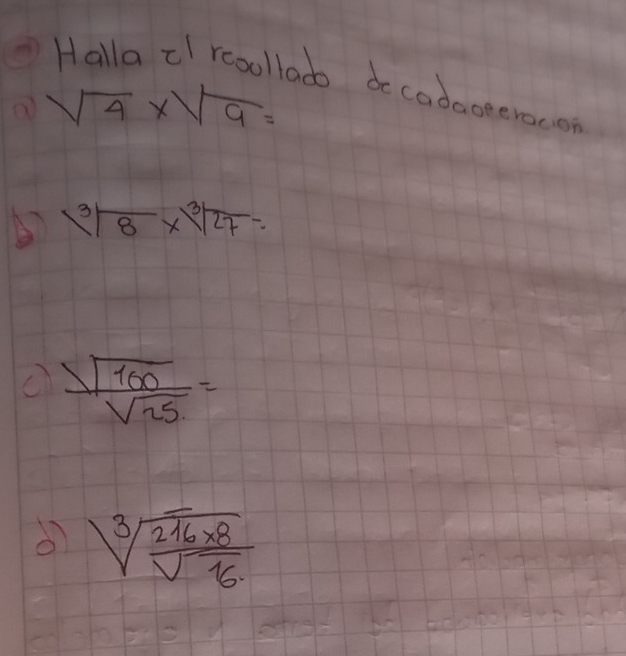 Halla el resultado de cada operación
a) √4 x √9 =
b) ∛8 x ∛27 =
c) √100 / √25. =
d) ∛(216 x 8 / √16.)